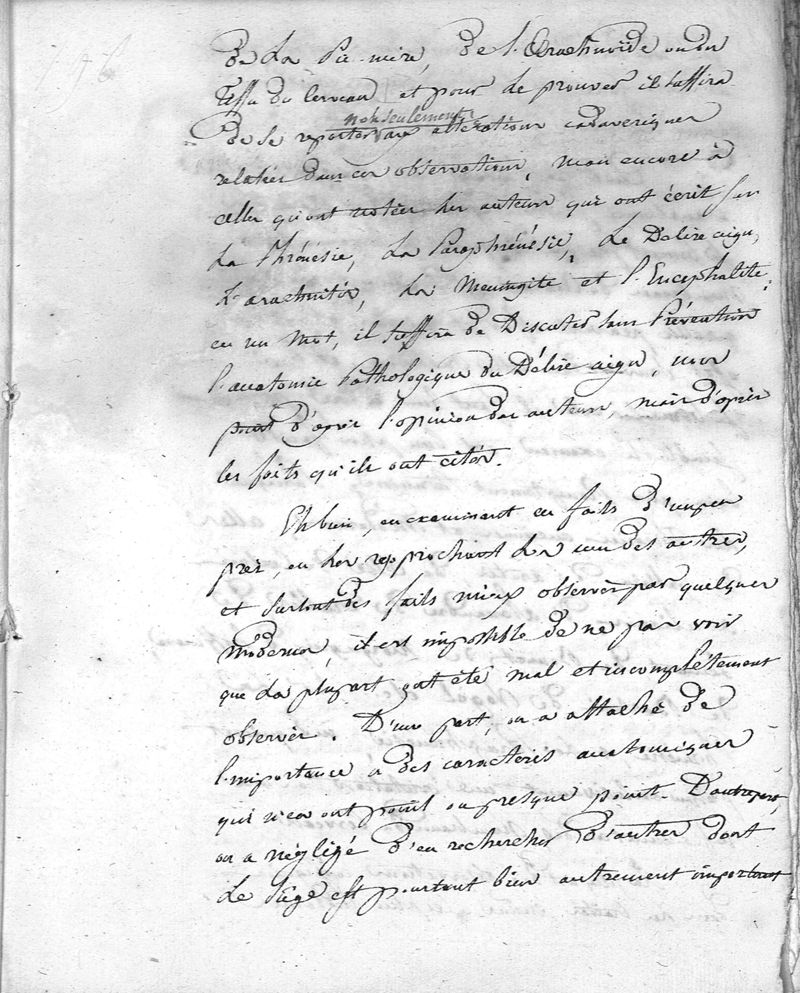 de la Pie-mère, de l'Arachnoïde ou du
tissu du cerveau et pour le prouver il suffira
non seulement
de se reporter aux altérations cadavériques
relatées dans ces observations, mais encore à
celles qu'ont notées les auteurs qui ont écrit sur
la Phrénésie, la Paraphrénésie, le Délire aigu,
l'arachnitis, la Méningite et l'Encéphalite,
en un mot, il suffira de Discuter sans Prévention
l'anatomie Pathologique du Délire aigu, non
point d'après l'opinion des auteurs, mais d'après
les faits qu'ils ont cités.
Eh bien, en examinant ces faits d'un peu
près, en les rapprochant les uns des autres,
et surtout des faits mieux observés par quelques
modernes, il est impossible de ne pas voir
que la plupart ont été mal et incomplètement
observés. D'une part, on a attaché de
l'importance à des caractères anatomiques
qui n'en ont point ou presque point. D'autre part,
on a négligé d'en rechercher d'autres dont
le siège est pourtant bien autrement important